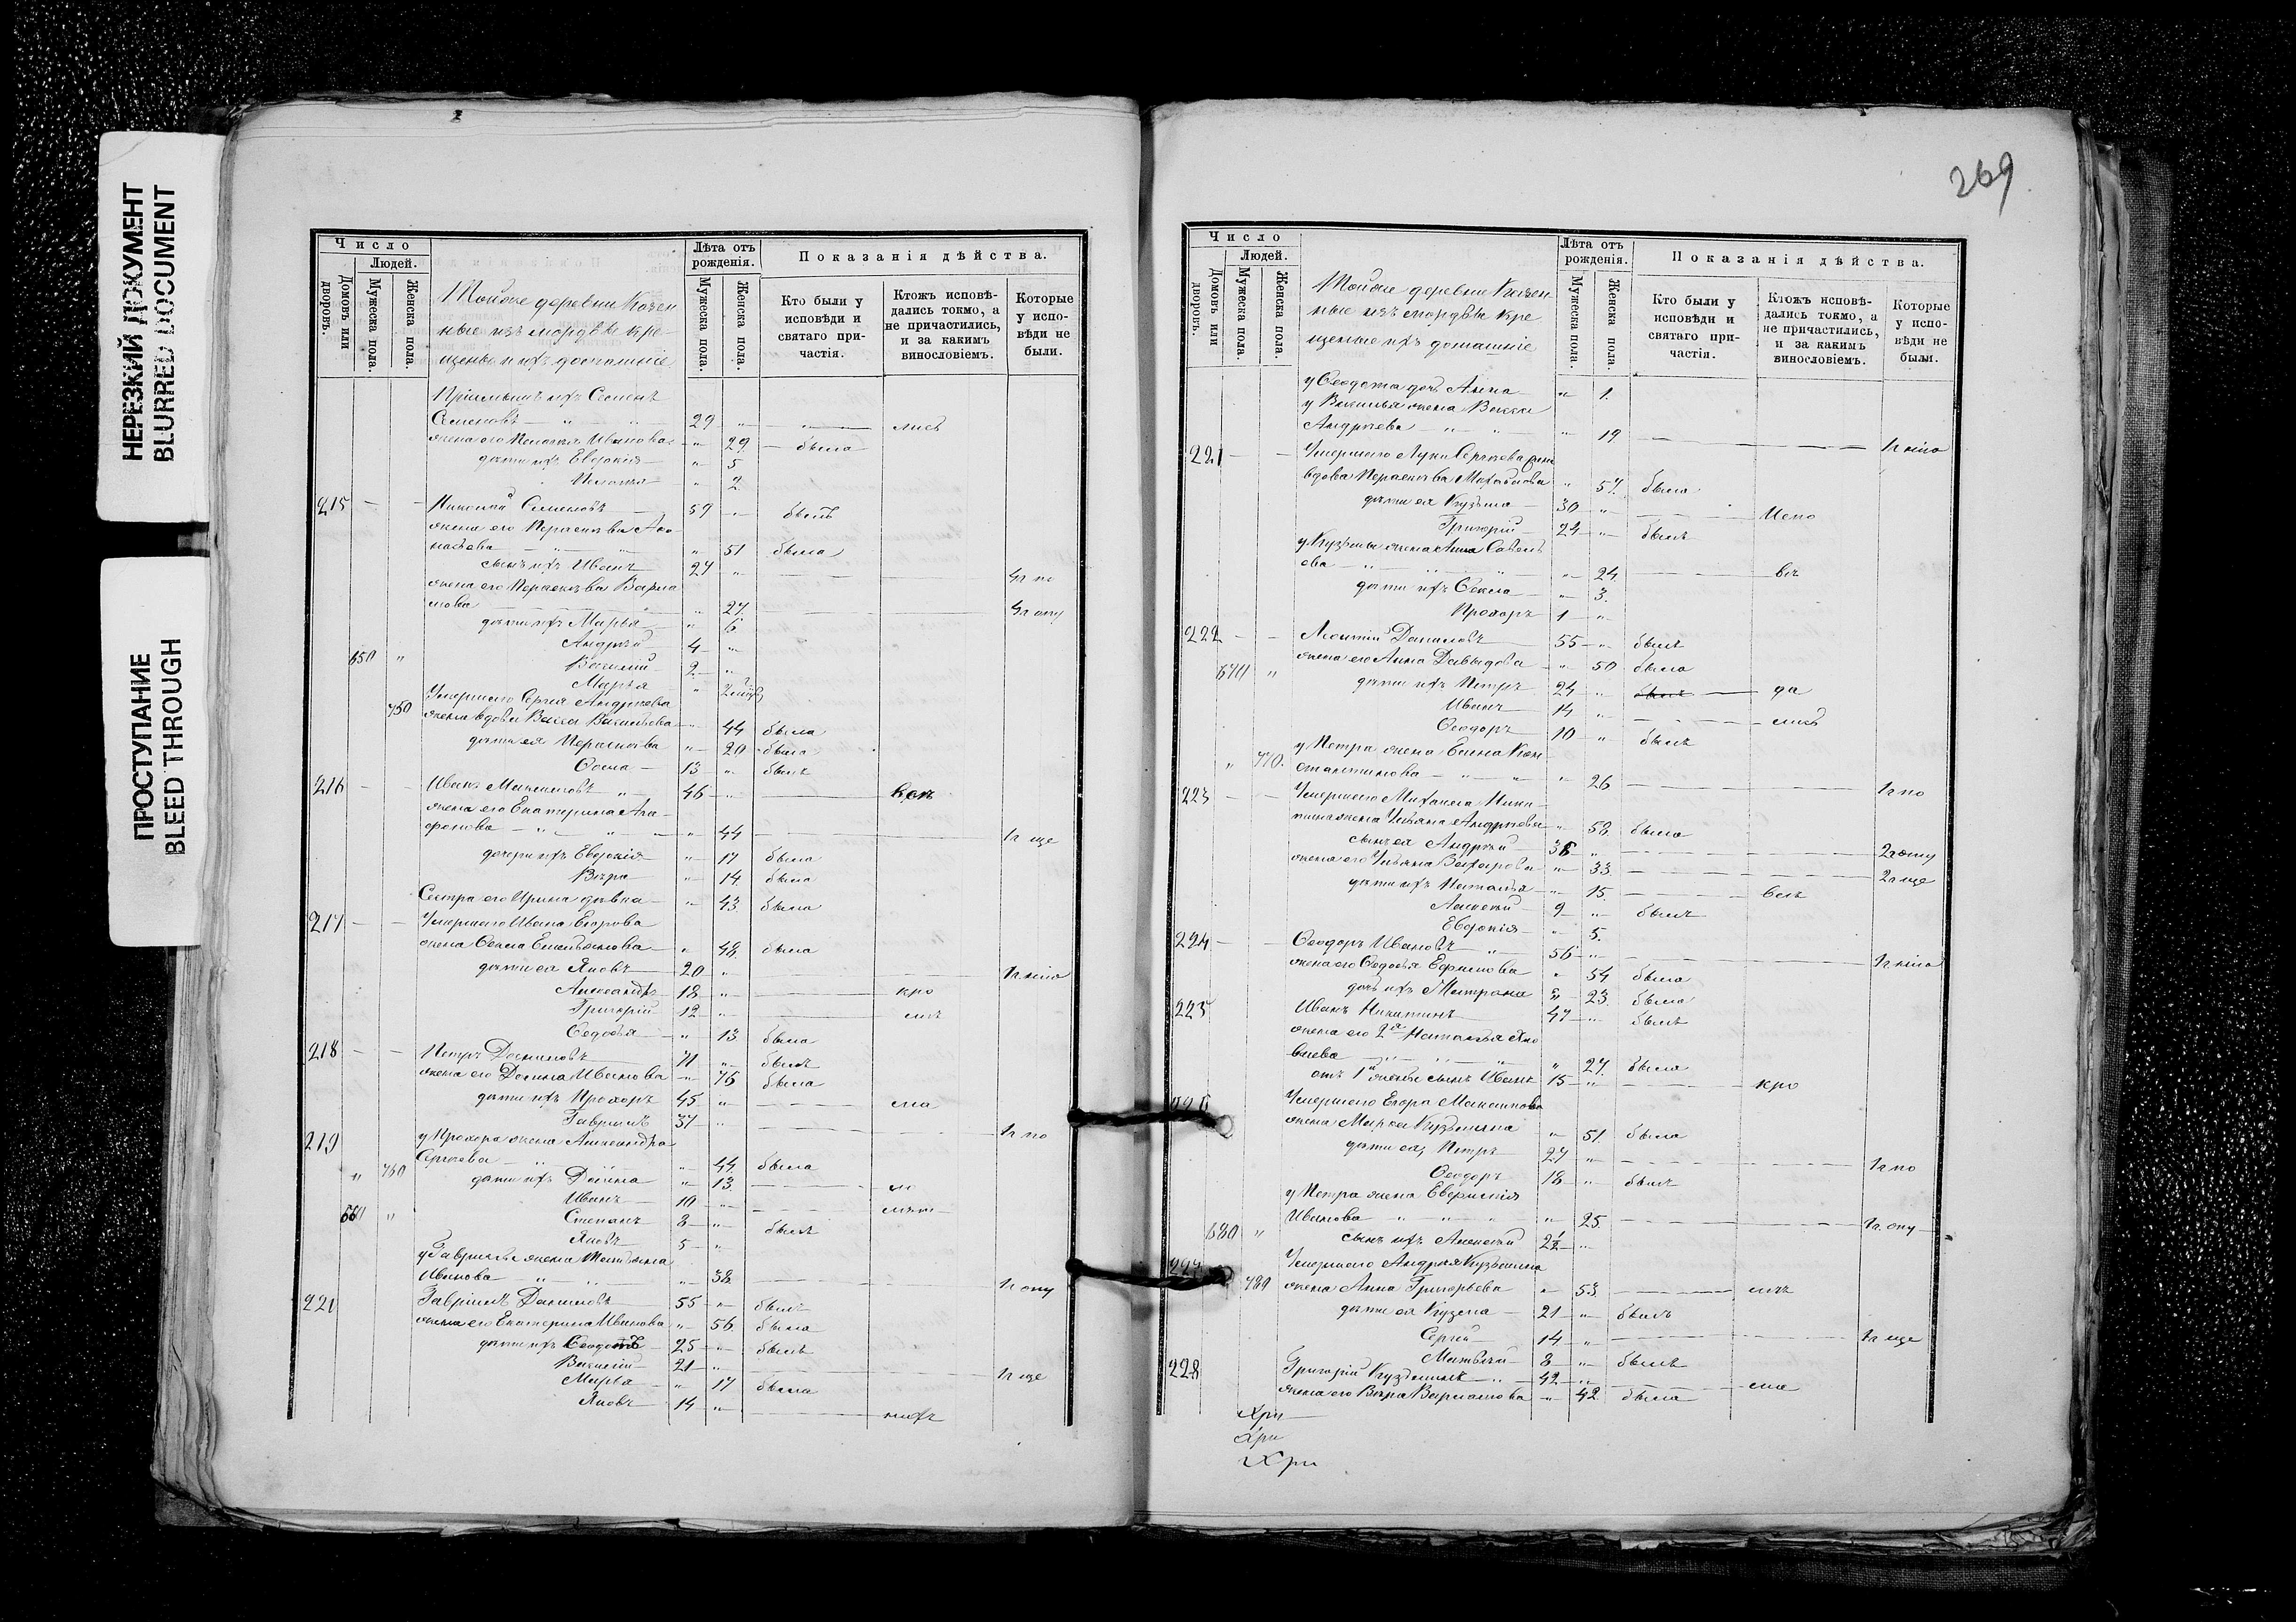 НЕРЕЗКИЙ ДОКУМЕНТ
BLURRED DOCUMENT
ПРОСТУПАНИЕ
BLEED THROUGH
Число
Домовъ или дворовъ.
Людей.
Мужеска пола.
Женска пола.
Тойже деревни Казен
ные изъ мордвы кре
щены и ихъ домашніе
Лѣта отъ рожденія.
Мужеска пола.
Женска пола.
Показанія дѣйства.
Кто были у исповѣди и святаго причастія.
Ктожъ исповѣдались токмо, а не причастились, и за какимъ винословіемъ.
Которые у исповѣди не были.
Пріемышъ ихъ Семенъ
Семеновъ 29
жена его Пелагея Иванова 29 была
дѣти ихъ Евдокія 5
Пелагея 2
215 Николай Семеновъ 59 былъ
жена его Параскева Афо
насьева 51 была
сынъ ихъ Иванъ 27
жена его Параскева Варла
мова 27
дѣти ихъ Марья 6
Андрей 4
650 Василій 2
Марѳа
Умершаго Сергія Андреева
750 жена вдова Васса Васильева 44 была
дѣти ея Параскева 20 была
Ѳома 13 былъ
216 Иванъ Максимовъ 46
жена его Екатерина Ага
фонова 44 1 г ще
дочери ихъ Евдокія 17 была
Вѣра 14 была
Сестра его Ирина дѣвка 43 была
217 Умершаго Ивана Егорова
жена Ѳекла Емельянова 48 была
дѣти ея Яковъ 20
Александръ 18 кро
Григорій 12
Ѳедосья 13 была
218 Петръ Даниловъ 71 былъ
жена его Домна Иванова 75 была
дѣти ихъ Прохоръ 45
Гаврилъ 37 1 г по
219 у Прохора жена Александра
Сергѣева 44 была
760 дѣти ихъ Домна 13
Иванъ 10
660 Степанъ 8 былъ
Яковъ 5
у Гаврилы жена Татьяна
Иванова 38 1 г опу
221 Гавріилъ Даниловъ 55 былъ
жена его Екатерина Иванова 56 была
дѣти ихъ Ѳеодотъ 25 былъ
Василій 21 1 г ще
Марѳа 17 была
Яковъ 14
269
Число
Домовъ или дворовъ.
Людей.
Мужеска пола.
Женска пола.
Тойже деревни Казен
ные изъ мордвы кре
щеные ихъ домашніе
Лѣта отъ рожденія.
Мужеска пола.
Женска пола.
Показанія дѣйства.
Кто были у исповѣди и святаго причастія.
Ктожъ исповѣдались токмо, а не причастились, и за какимъ винословіемъ.
Которые у исповѣди не были.
у Ѳеодота дочь Анна 1
у Василья жена Васса
Андреева 19
221 Умершаго Луки Сергѣева жена
вдова Параскева Михайлова 57 была
дѣти ея Кузьма 30
Григорій 24 былъ
у Кузьмы жена Анна Савель
ева 24
дѣти ихъ Ѳекла 3
Прохоръ 1
222 Леонтій Даниловъ 55 былъ
жена его Анна Давыдова 50 была
670 дѣти ихъ Петръ 24 да
Иванъ 14
Ѳеодоръ 10 былъ
у Петра жена Елена Кон
770 стантинова 26 1 г по
223 Умершаго Михаила Ники
тина жена Ульяна Андреева 58 была
сынъ ея Андрей 36
жена его Ульяна Захарова 33 2 г ще
дѣти ихъ Наталья 15
Алексѣй 9 былъ
Евдокія 5
224 Ѳеодоръ Ивановъ 56
жена его Ѳедосья Ефимова 54 была
дочь ихъ Матрона 23 была
225 Иванъ Никитинъ 47 былъ
жена его 2я Наталья Яко
влева 27 была
отъ 1й жены сынъ Иванъ 15 кро
226 Умершаго Егора Максимова
жена Марѳа Кузьмина 51 была
дѣти ея Петръ 27 1 г по
Ѳеодоръ 18 былъ
у Петра жена Евдокія
Иванова 25 1 г опу
680 сынъ ихъ Алексѣй 2½
227 Умершаго Андрея Кузьмина
780 жена Анна Григорьева 53
дѣти ея Кузьма 21 былъ
Сергій 14 1 г ще
Матвѣй 8 былъ
228 Григорій Кузьминъ 42
жена его Вѣра Варламова 42 была
Хри
Хри
Хри